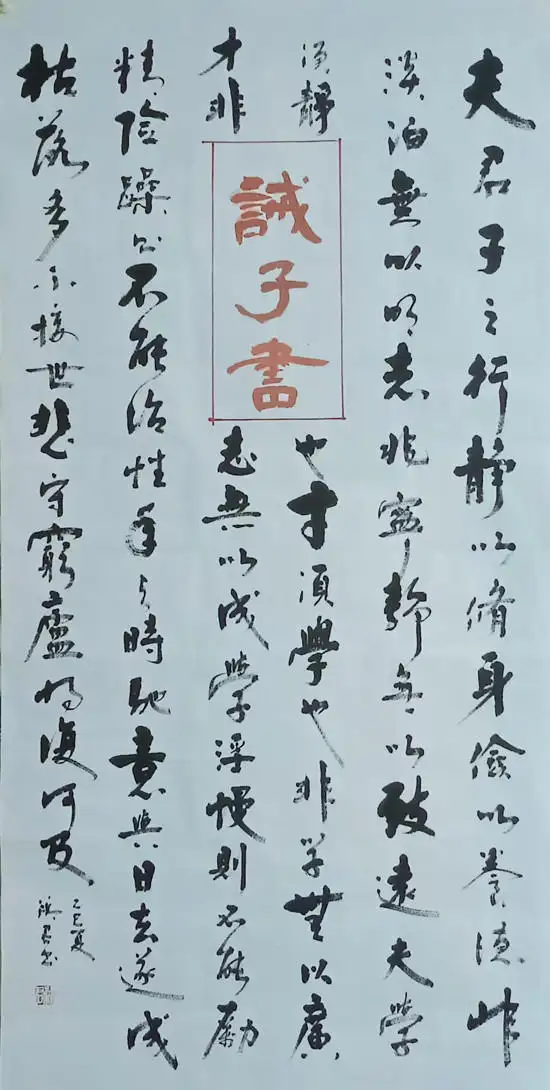 誡子書
夫君子之行靜以脩身儉以養德非
淡泊無以明志非寧靜無以致遠夫學
須靜也才須學也非学無以廣
才非志無以成學浮慢則不能勵
精险躁则不能治性年与時馳意與日去遂成
枯落多不接世悲守窮廬将復何及
乙巳夏